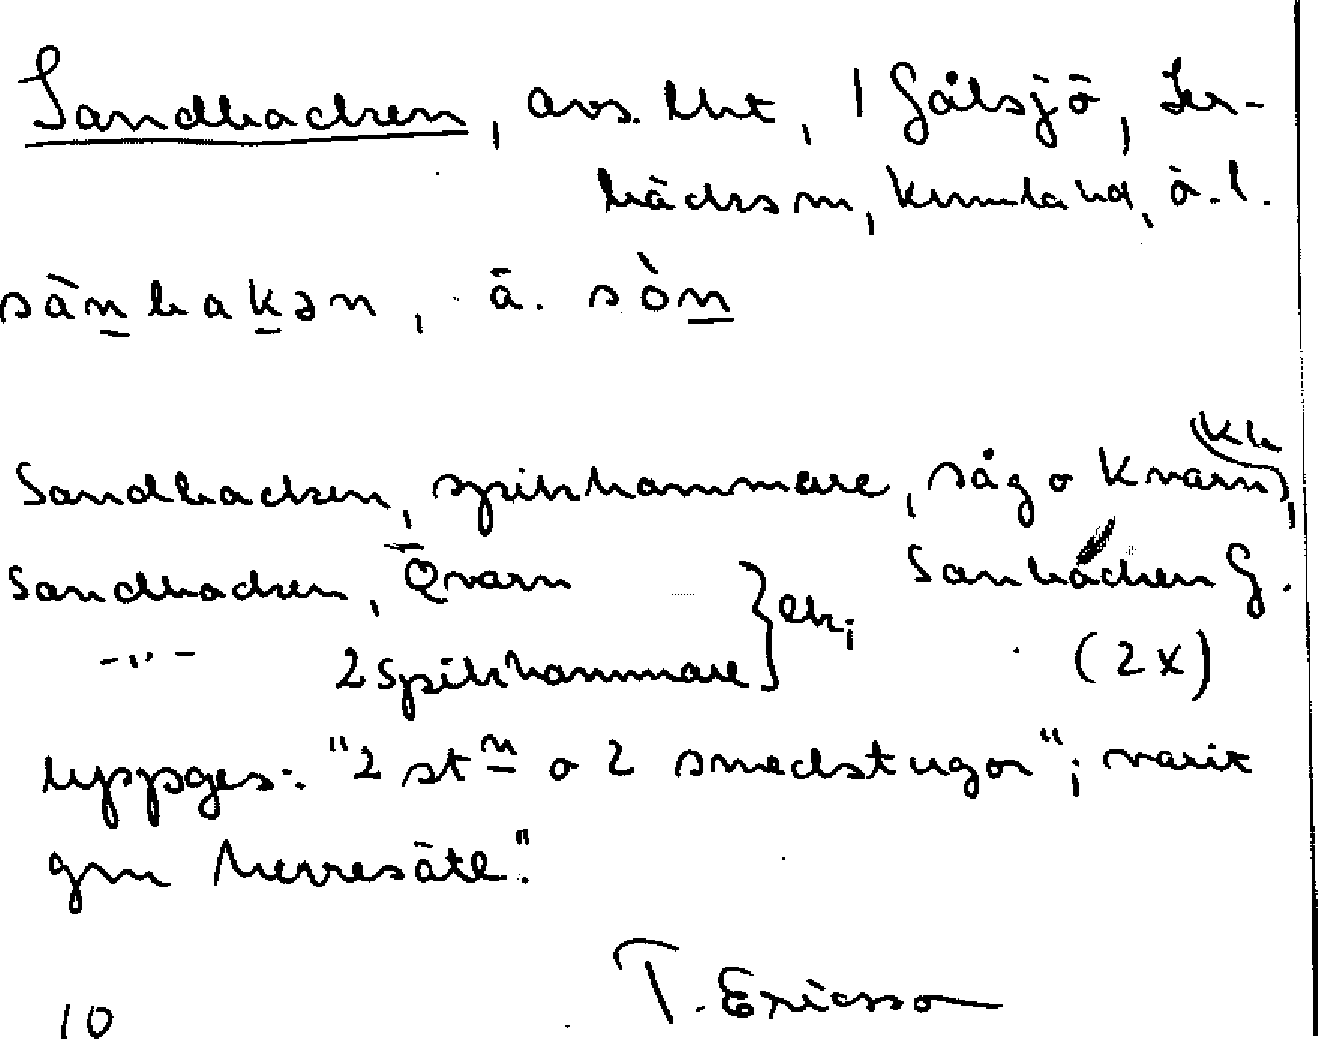 Sandbacken, avs. lht, 1 Gålsjö, Ler-
bäcks sn, Kumla hd, ö. l.
sànbakən, ä. sòn
kb
Sandbacken, spikhammare, såg o kvarn,
Sandbacken, Qvarn } ek; Sanbacken G.
-"- 2 spikhammare (2x)
uppges: "2 stn o 2 smedstugor"; varit
gm herresäte."
T. Ericsson
10